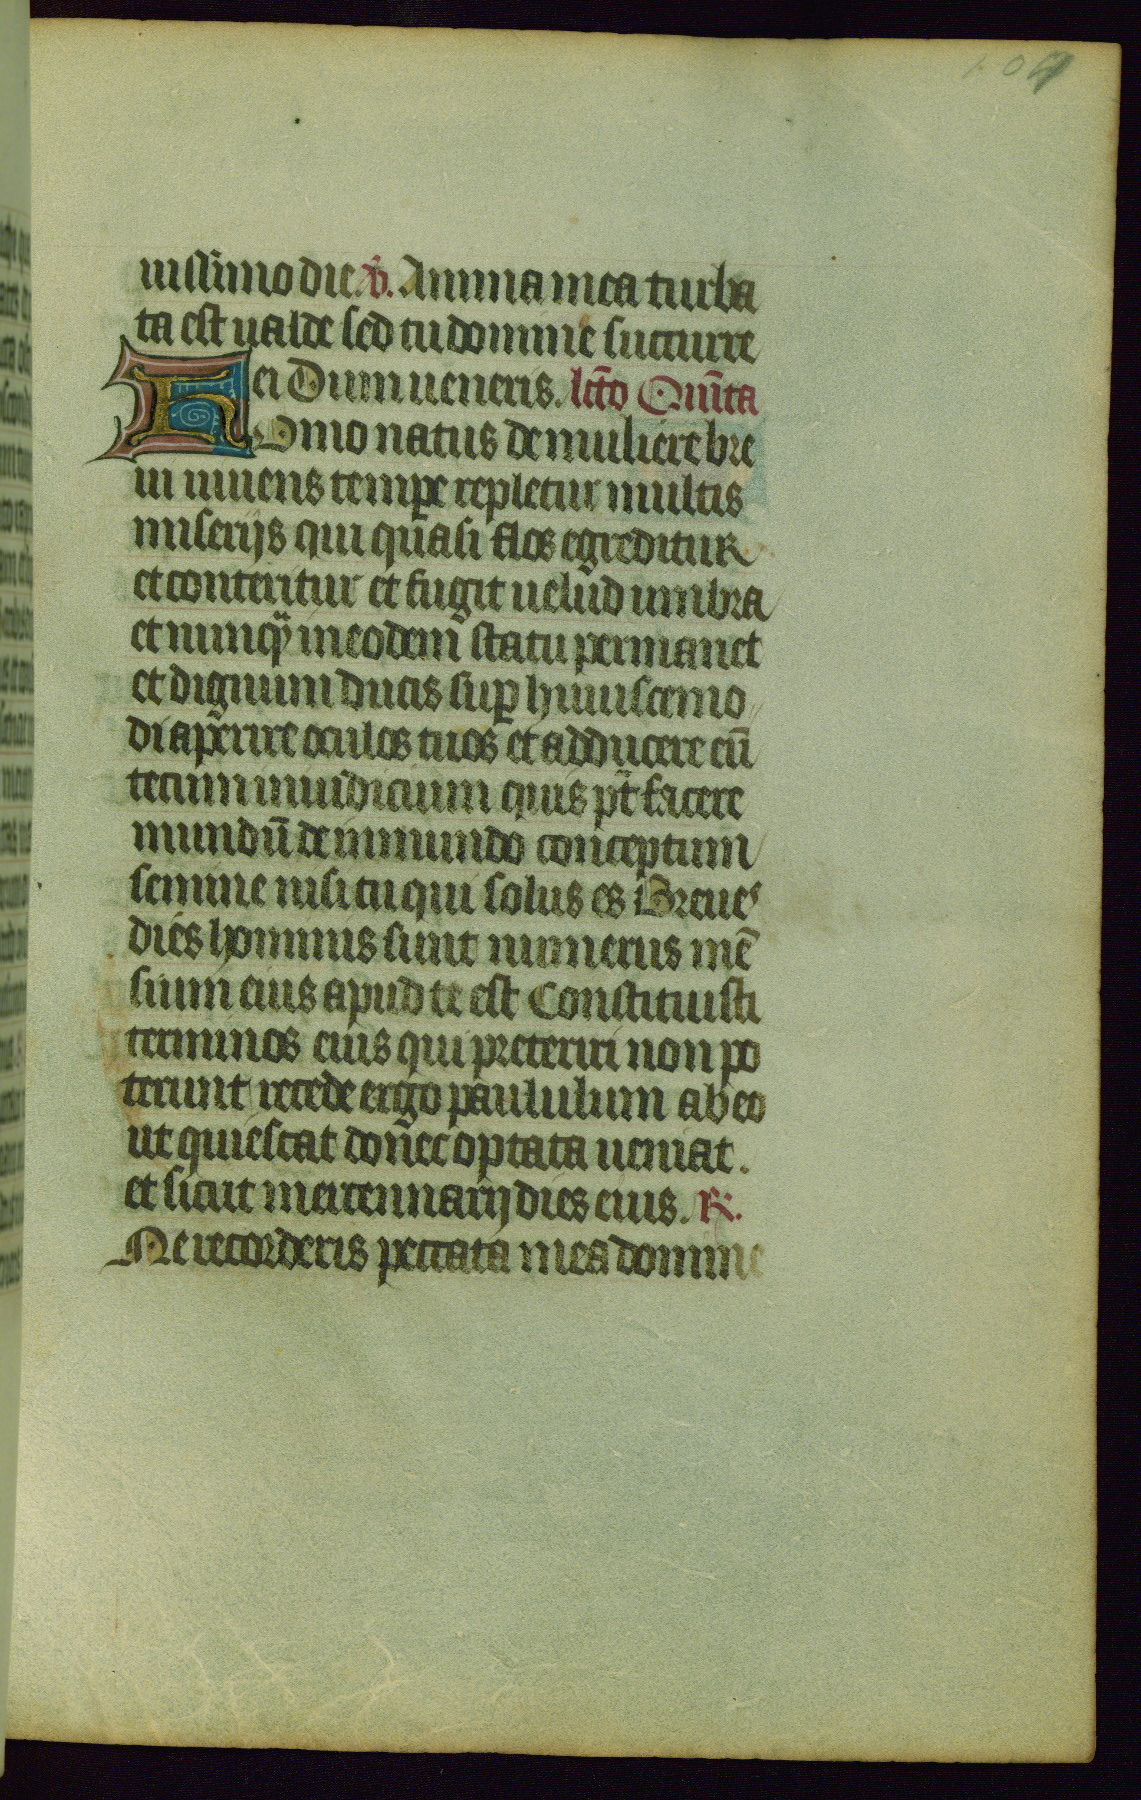 uissimo die. V̄. Anima mea turba
ta est ualde sed tu domine succurre
ei Dum ueneris. lcō Quīta
Homo natus de muliere bre
ui uiuens tempe repletur multis
miserijs qui quasi flos egreditur
et conteritur et fugit uelud umbra
et nunq̄ in eodem statu permanet
et dignum ducis sup huiuscemo
di aperire oculos tuos et adducere eū
tecum in iudicium quis pt̄ facere
mundū de inmundo conceptum
semine nisi tu qui solus es Breues
dies hominis sunt numerus mē
sium eius apud te est Constituisti
terminos eius qui preteriri non po
terunt recede ergo paululum ab eo
ut quiescat donec optata ueniat.
et sicut mercennarij dies eius. R̄.
Ne recorderis peccata mea domine